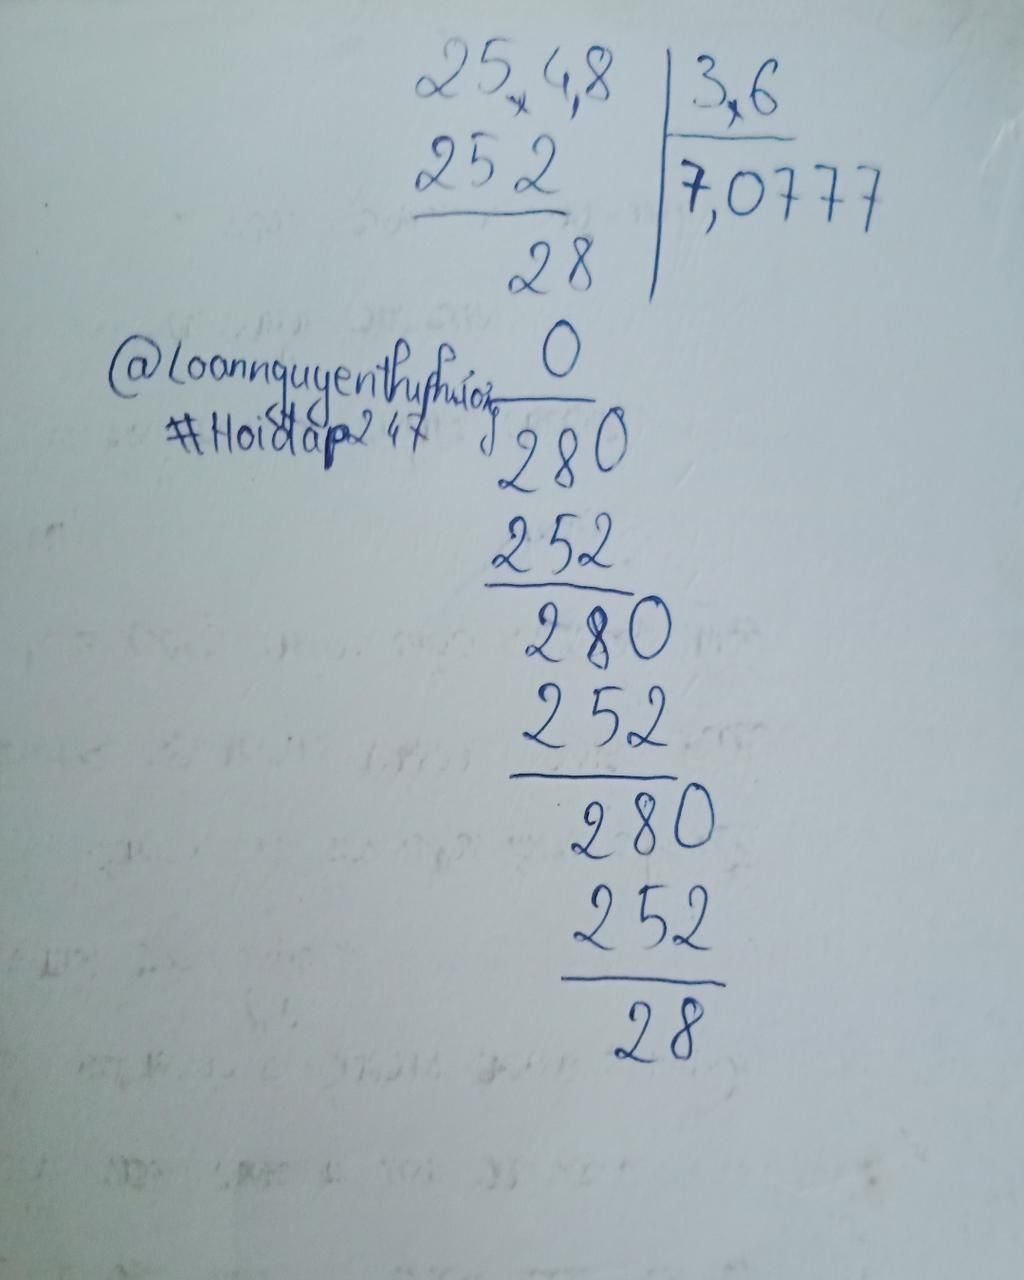 25,4,8 3,6
252 7,0777
28
0
@Loannguyenthuphuong
#Hoiđáp247
280
252
280
252
280
252
28